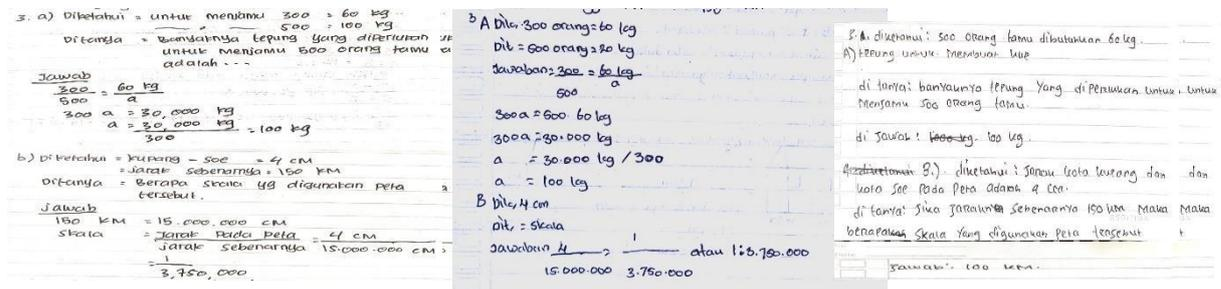 3. a) Diketahui = untuk menjamu 300 = 60 kg
500 = 100 kg
Ditanya = Banyaknya tepung yang diperlukan
untuk menjamu 500 orang tamu
adalah ...
Jawab
300 = 60 kg
500 a
300 a = 30,000 kg
a = 30,000 kg = 100 kg
300
b) Diketahui = Kupang - Soe = 4 cm
= Jarak sebenarnya = 150 KM
Ditanya = Berapa skala yg digunakan peta
tersebut.
Jawab
150 KM = 15.000.000 cm
Skala = Jarak Pada Peta = 4 cm
Jarak Sebenarnya 15.000.000 cm
= 1
3,750,000
3 A Dik, 300 orang = 60 kg
Dit = 500 orang = 20 kg
Jawaban = 300 = 60 kg
500 a
300a = 500. 60 kg
300a = 30.000 kg
a = 30.000 kg / 300
a = 100 kg
B Dik, 4 cm
Dit, = Skala
Jawaban 4 = 1 atau 1:3.750.000
15.000.000 3.750.000
3.A. diketahui: 300 orang tamu dibutuhkan 60 kg.
A) tepung untuk membuat kue
di tanya: banyaknya tepung yang diperlukan untuk, untuk
menjamu 500 orang tamu.
di Jawab: 100 kg.
B.) diketahui: kota kupang dan dan
kota Soe Pada Peta adalah 4 cm.
di tanya: Jika Jaraknya Sebenarnya 150 km Maka Maka
berapakah skala yang digunakan peta tersebut t
Jawab: 100 km.